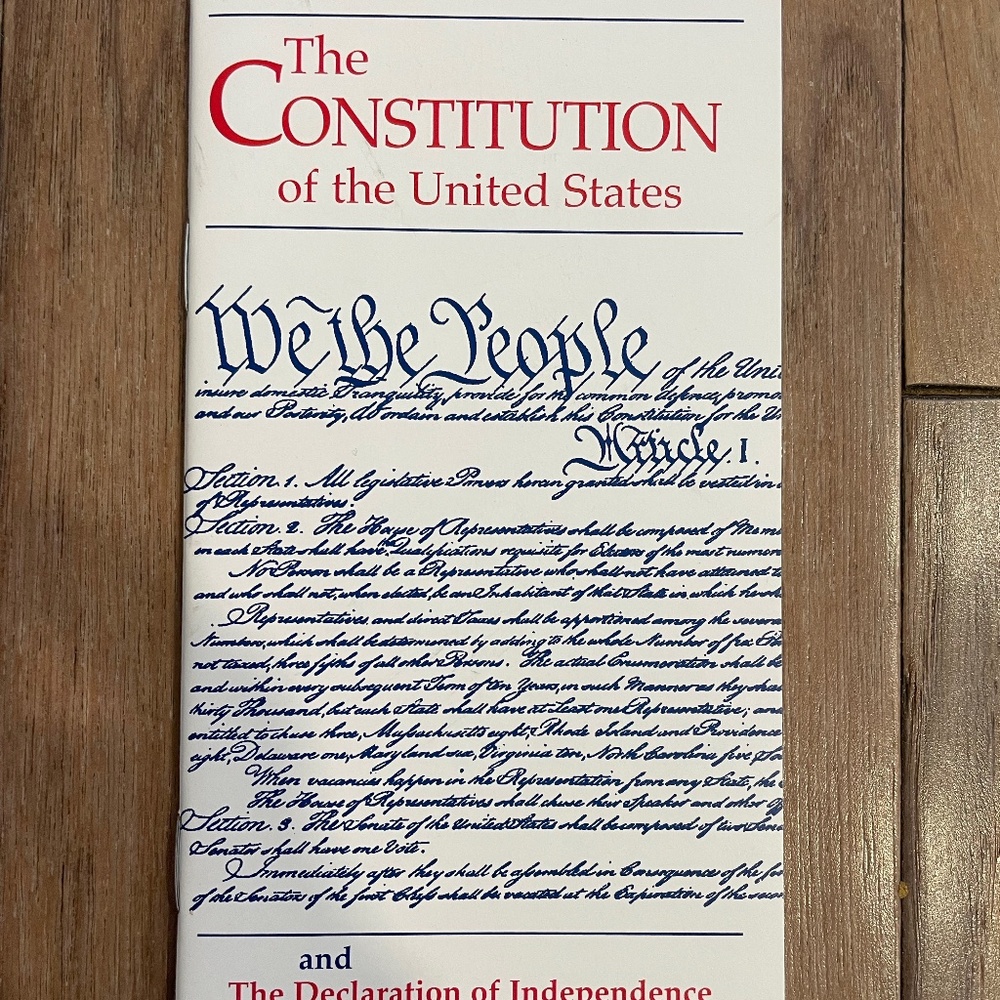 The
CONSTITUTION
of the United States
We the People of the Uni
insure domestic Tranquility, provide for the common defence, promo
and our Posterity, do ordain and establish this Constitution for the Un
Article. I.
Section. 1. All legislative Powers herein granted shall be vested in a
of Representatives.
Section. 2. The House of Representatives shall be composed of Mem
in each State shall have the Qualifications requisite for Electors of the most numero
No Person shall be a Representative who shall not have attained t
and who shall not, when elected, be an Inhabitant of that State in which he sh
Representatives and direct Taxes shall be apportioned among the severa
Numbers, which shall be determined by adding to the whole Number of free
not taxed, three fifths of all other Persons. The actual Enumeration shall be
and within every subsequent Term of ten Years, in such Manner as they shal
thirty Thousand, but each State shall have at Least one Representative; and
entitled to chuse three, Massachusetts eight, Rhode Island and Providence
eight, Delaware one, Maryland six, Virginia ten, North Carolina five, So
When vacancies happen in the Representation from any State, the
The House of Representatives shall chuse their Speaker and other Of
Section. 3. The Senate of the United States shall be composed of two Sena
Senator shall have one Vote.
Immediately after they shall be assembled in Consequence of the fir
of the Senators of the first Class shall be vacated at the Expiration of the secon
and
The Declaration of Independence